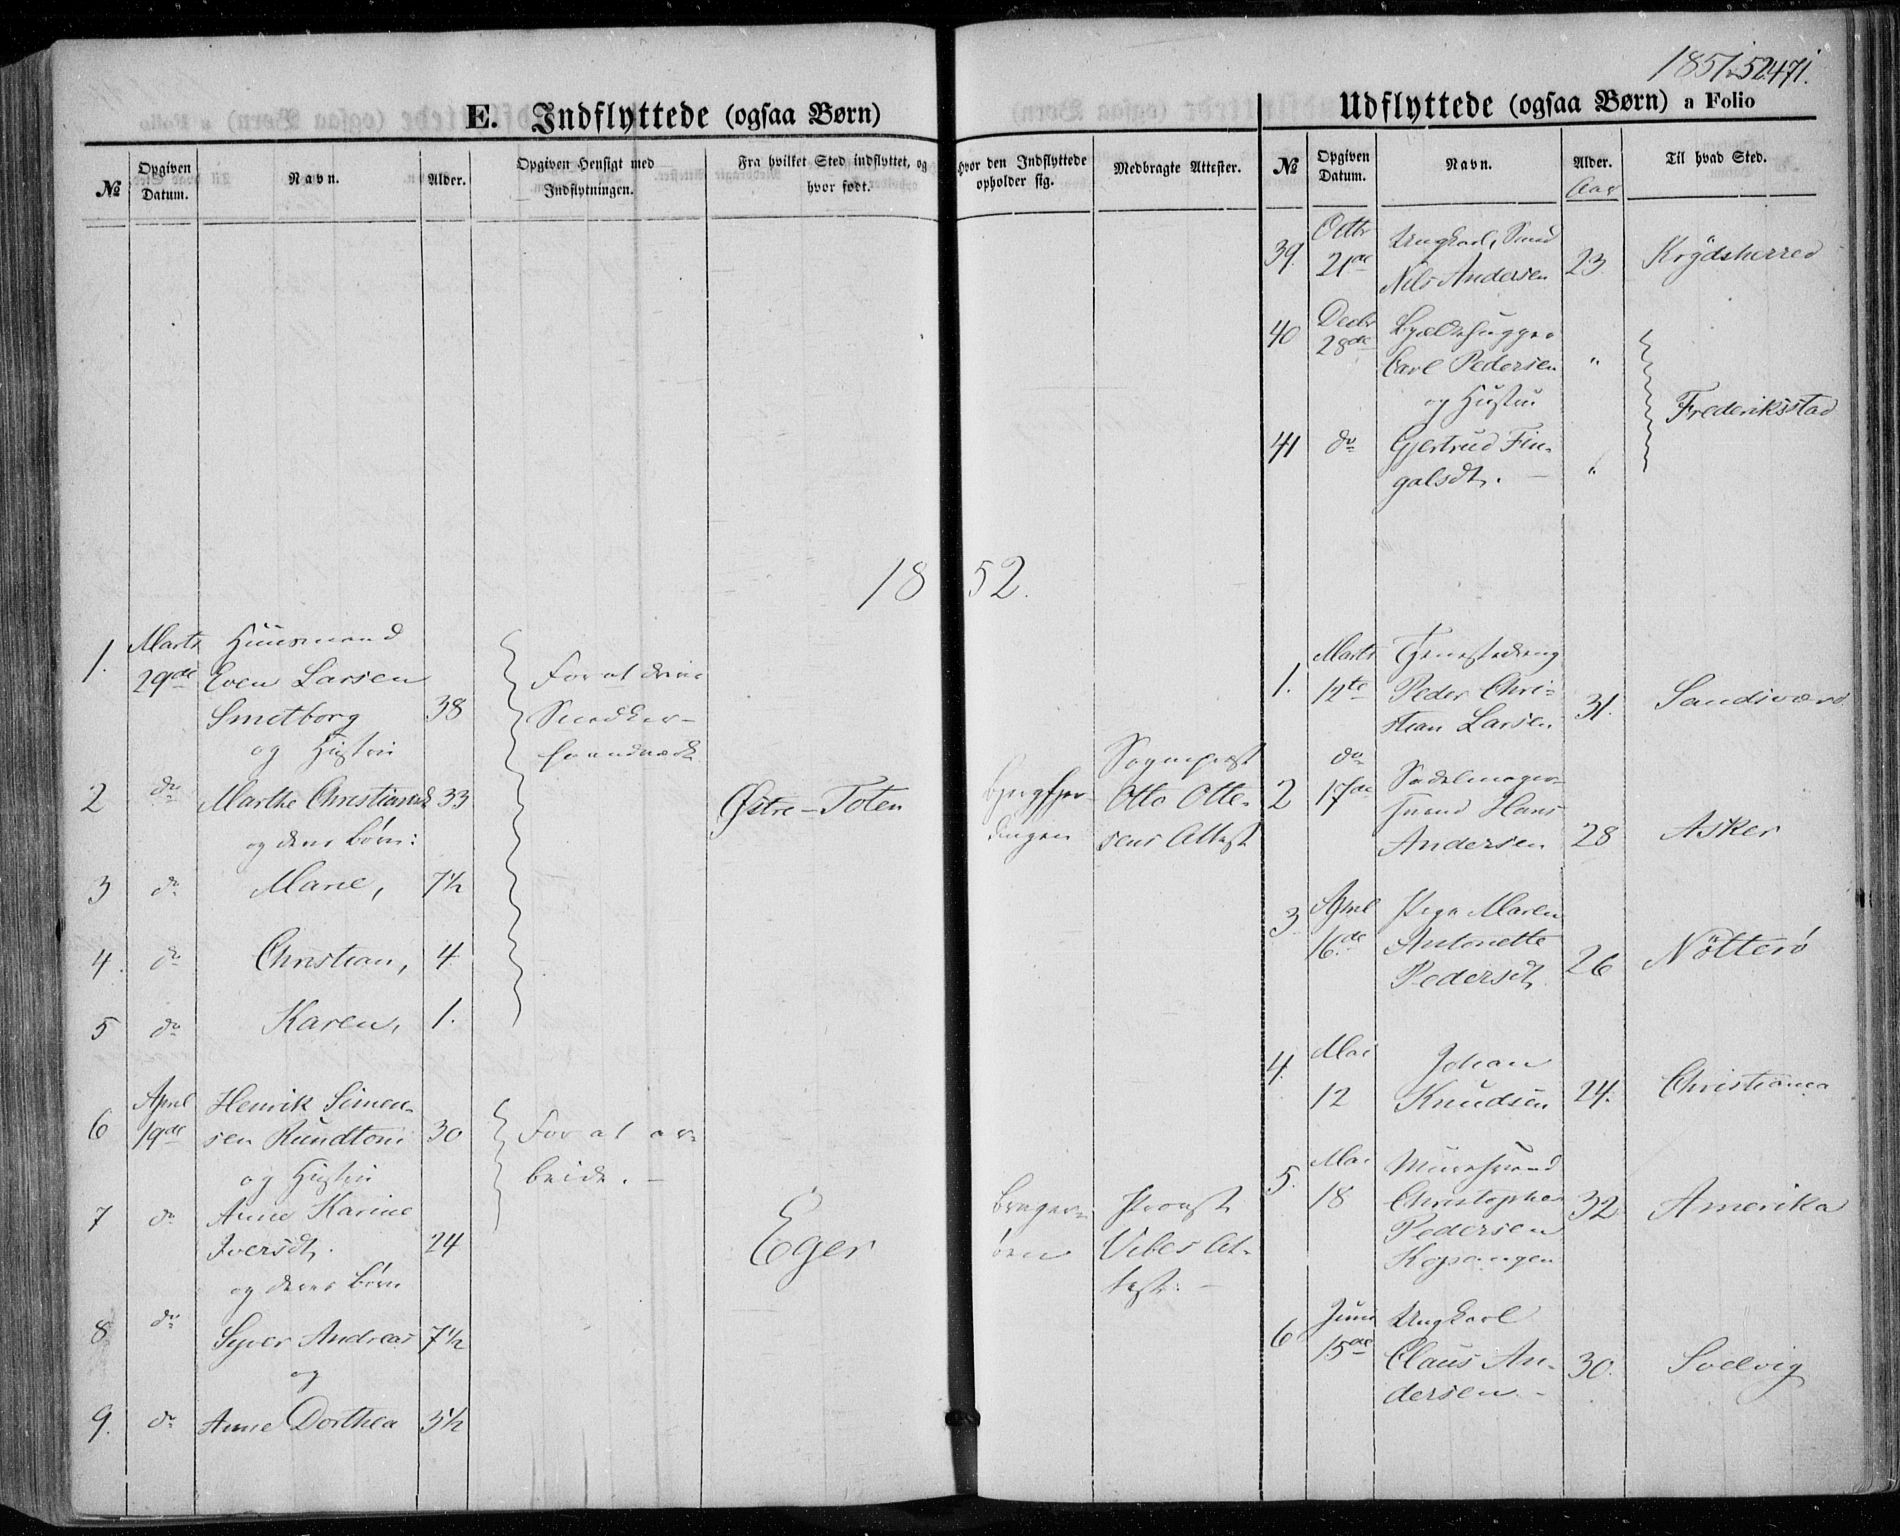 1851-52. 471.
E. Indflyttede (ogsaa Børn)
№
Opgiven Datum.
Navn.
Alder.
Opgiven Hensigt med Indflytningen.
Fra hvilket Sted indflyttet, og hvor født.
Hvor den Indflyttede opholder sig.
Medbragte Attester.
1852.
1. Marts Huusmand
29de Even Larsen
Smetborg 38
og Hustru
For at drive
Snedker-
haandværk
2 do Marthe Christiansd. 33
og deres Børn:
Østre-Toten
Sognepræst
Otto Otte-
sens Attest
3 do Marie, 7½
4. do Christian, 4
5 do Karen, 1.
April Henrik Simen-
6 19de sen Rundtom 30
og Hustru
For at ar-
beide. -
7 do Anne Karine
Iversdt. 24
og deres Børn
Eger
Brager-
øen
Provst
Vibes At-
test. -
8 do Syver Andreas 7½
og
9. do Anne Dorthea 3½
Udflyttede (ogsaa Børn) a Folio
№
Opgiven Datum.
Navn.
Alder.
Til hvad Sted.
Aar
39. Octbr Ungkarl, Smed
21de Nils Andersen 23 Krydsherred
40 Decbr
28de Carl Pedersen "
og Hustru
Frederiksstad
41 do Gjertrud Fin-
galsdt. - "
1. Marts Tjenestedreng
12te Peder Chri-
stian Larsen 31. Sandsværd
2 do Sadelmager-
17de svend Hans
Andersen 28 Asker
3. April Pige Maren
16de Antonette
Pedersdt. 26 Nötterö
4. Mai Johan
12 Knudsen 24. Christiania
5. Mai Muursvend
18 Christopher 32 Amerika
Pedersen
Kopangen
6 Juni Ungkarl
15de Claus An- 30. Svelvig
dersen -